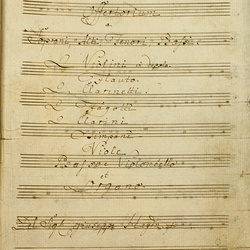 Offertorium
a
Soprano, Alto, Tenore, Basso.
2. Violini
Flauto.
2. Clarinetti.
2. Fagotti
2. Clarini
Timpani
Viole
Basso e Violoncello
et
Organo.
Del Sig.